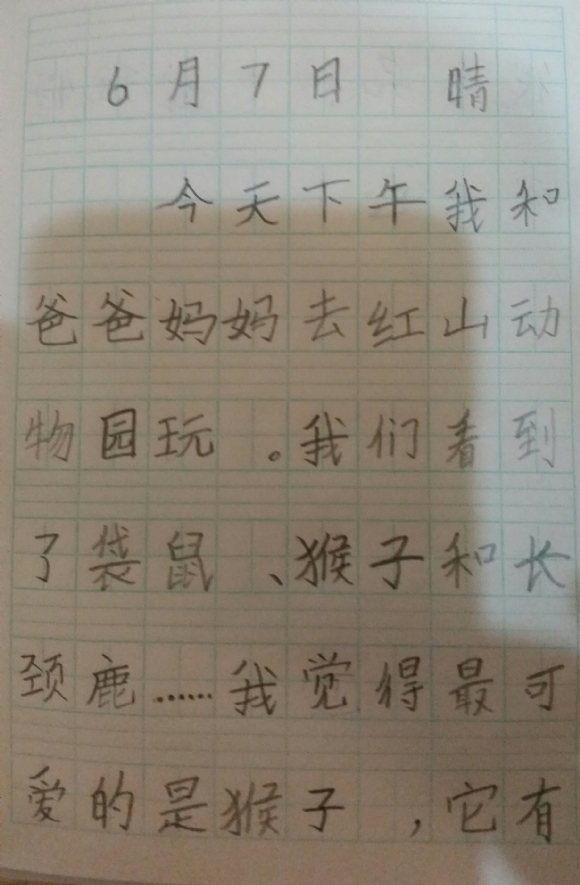 6月7日 晴
今天下午我和
爸爸妈妈去红山动
物园玩。我们看到
了袋鼠、猴子和长
颈鹿……我觉得最可
爱的是猴子，它有